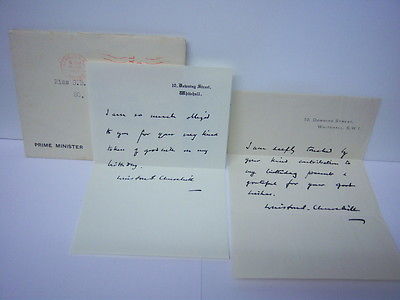 Miss G.S.
80.
PRIME MINISTER
10, Downing Street,
Whitehall.
I am so much obliged
to you for your very kind
token of goodwill on my
birthday.
Winston S. Churchill
10, DOWNING STREET,
WHITEHALL, S.W.1.
I am deeply touched by
your kind contribution to
my birthday presents &
grateful for your good
wishes.
Winston S. Churchill